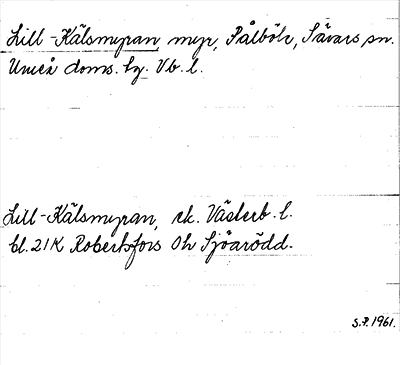 Lill-Kälsmyran myr, Pålböle, Sävars sn.
Umeå doms. hg. Vb. l.
Lill-Kälsmyran, ek. Västerb. l.
bl. 21K Robertsfors Oh Sjöarödd.
S.P. 1961.